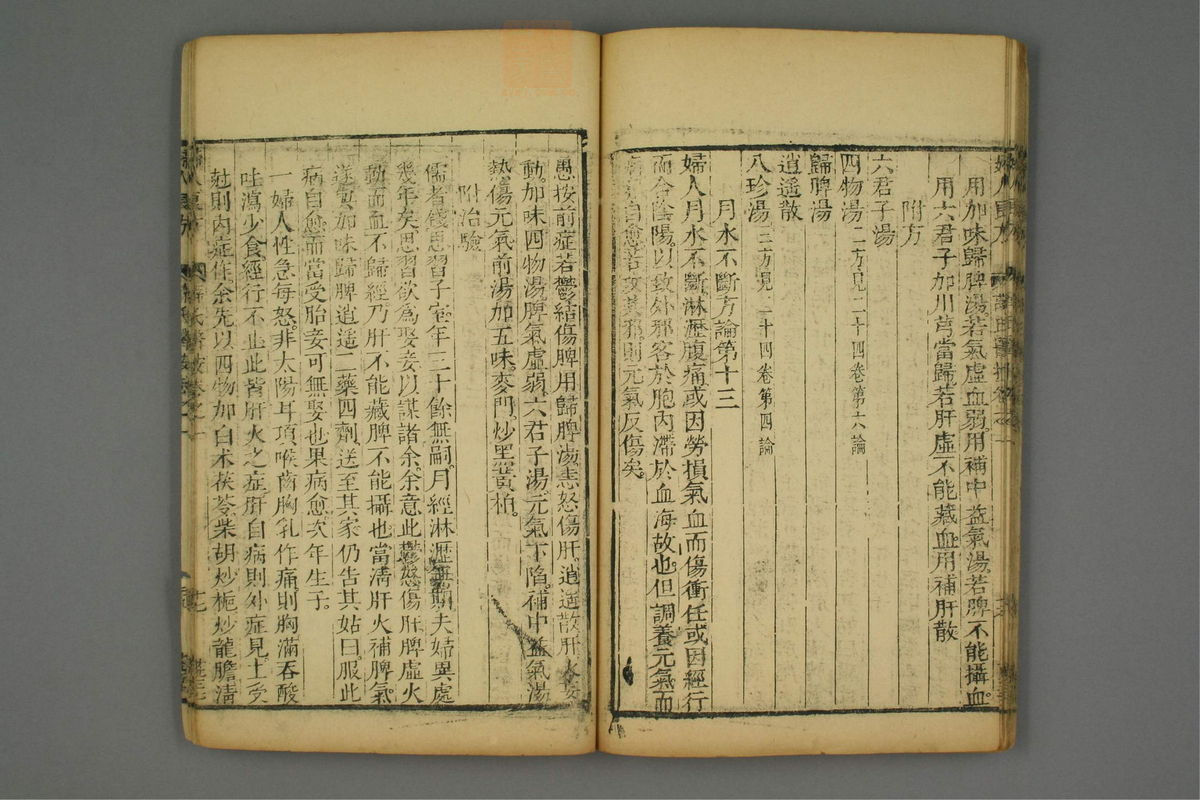 用加味歸脾湯若氣虛血弱用補中益氣湯若脾不能攝血
用六君子加川芎當歸若肝虛不能藏血用補肝散
附方
六君子湯
四物湯二方見二十四卷第六論
歸脾湯
逍遥散
八珍湯三方見二十四卷第四論
月水不斷方論第十三
婦人月水不斷淋瀝腹痛或因勞損氣血而傷衝任或因經行
而合陰陽以致外邪客於胞內滯於血海故也但調養元氣而
病自愈若攻其邪則元氣反傷矣
愚按前症若鬱結傷脾用歸脾湯恚怒傷肝逍遥散肝火妄
動加味四物湯脾氣虛弱六君子湯元氣下陷補中益氣湯
熱傷元氣前湯加五味麥門炒黑黃栢
附治驗
儒者錢思習子室年三十餘無嗣月經淋瀝無期夫婦異處
幾年矣思習欲爲娶妾以謀諸余余意此鬱怒傷肝脾虛火
動而血不歸經乃肝不能藏脾不能攝也當清肝火補脾氣
遂與加味歸脾逍遥二藥四劑送至其家仍告其姑曰服此
病自愈而當受胎妾可無娶也果病愈次年生子
一婦人性急每怒非太陽耳項喉齒胸乳作痛則胸滿吞酸
吐瀉少食經行不止此皆肝火之症肝自病則外症見土受
尅則內症作余先以四物加白术茯苓柴胡炒梔炒龍膽清